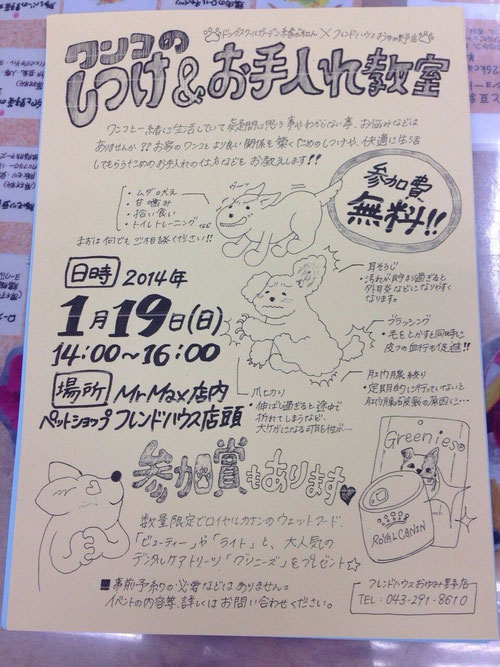 ドッグスクールガーデン × フレンドハウスおゆみ野店
ワンコの
しつけ&お手入れ教室
ワンコと一緒に生活していて疑問に思う事やわからない事、お悩みなどは
ありませんか?? お家のワンコとより良い関係を築くためのしつけや、快適に生活
してもらうためのお手入れの仕方などをお教えします!!
・ムダ吠え
・甘噛み
・拾い食い
・トイレトレーニング など
まずは何でもご相談ください!!
参加費
無料!!
日時 2014年
1月19日(日)
14:00~16:00
場所 MrMax店内
ペットショップ フレンドハウス店頭
耳そうじ
・汚れが貯まり過ぎると
外耳炎などになりやすく
なります。
ブラッシング
・毛をとかすと同時に
皮フの血行も促進!!
肛門腺絞り
・定期的に行っていないと
肛門腺破裂の原因に…
爪切り
・伸ばし過ぎると途中で
折れてしまうなど、
大ケガになる可能性が…
参加賞もあります♥
数量限定でロイヤルカナンのウェットフード、
「ビューティー」や「ライト」と、大人気の
デンタルケアトリーツ「グリニーズ」をプレゼント☆
Greenies®
ROYAL CANIN
■事前予約の必要などはありません。
イベントの内容等、詳しくはお問い合わせください。
フレンドハウスおゆみ野店
TEL:043-291-8610